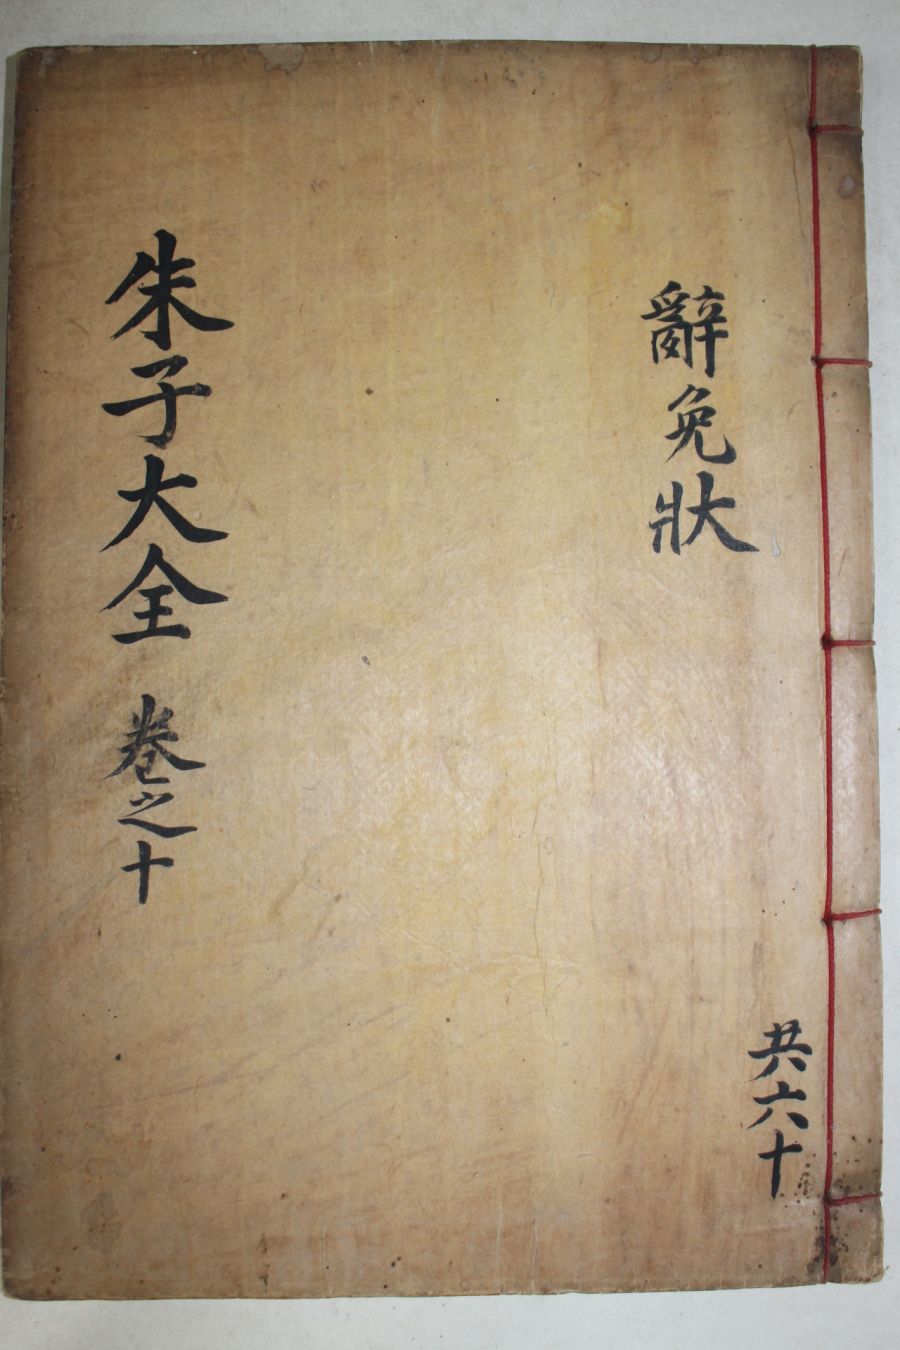 辭免狀
共六十
朱子大全 卷之十